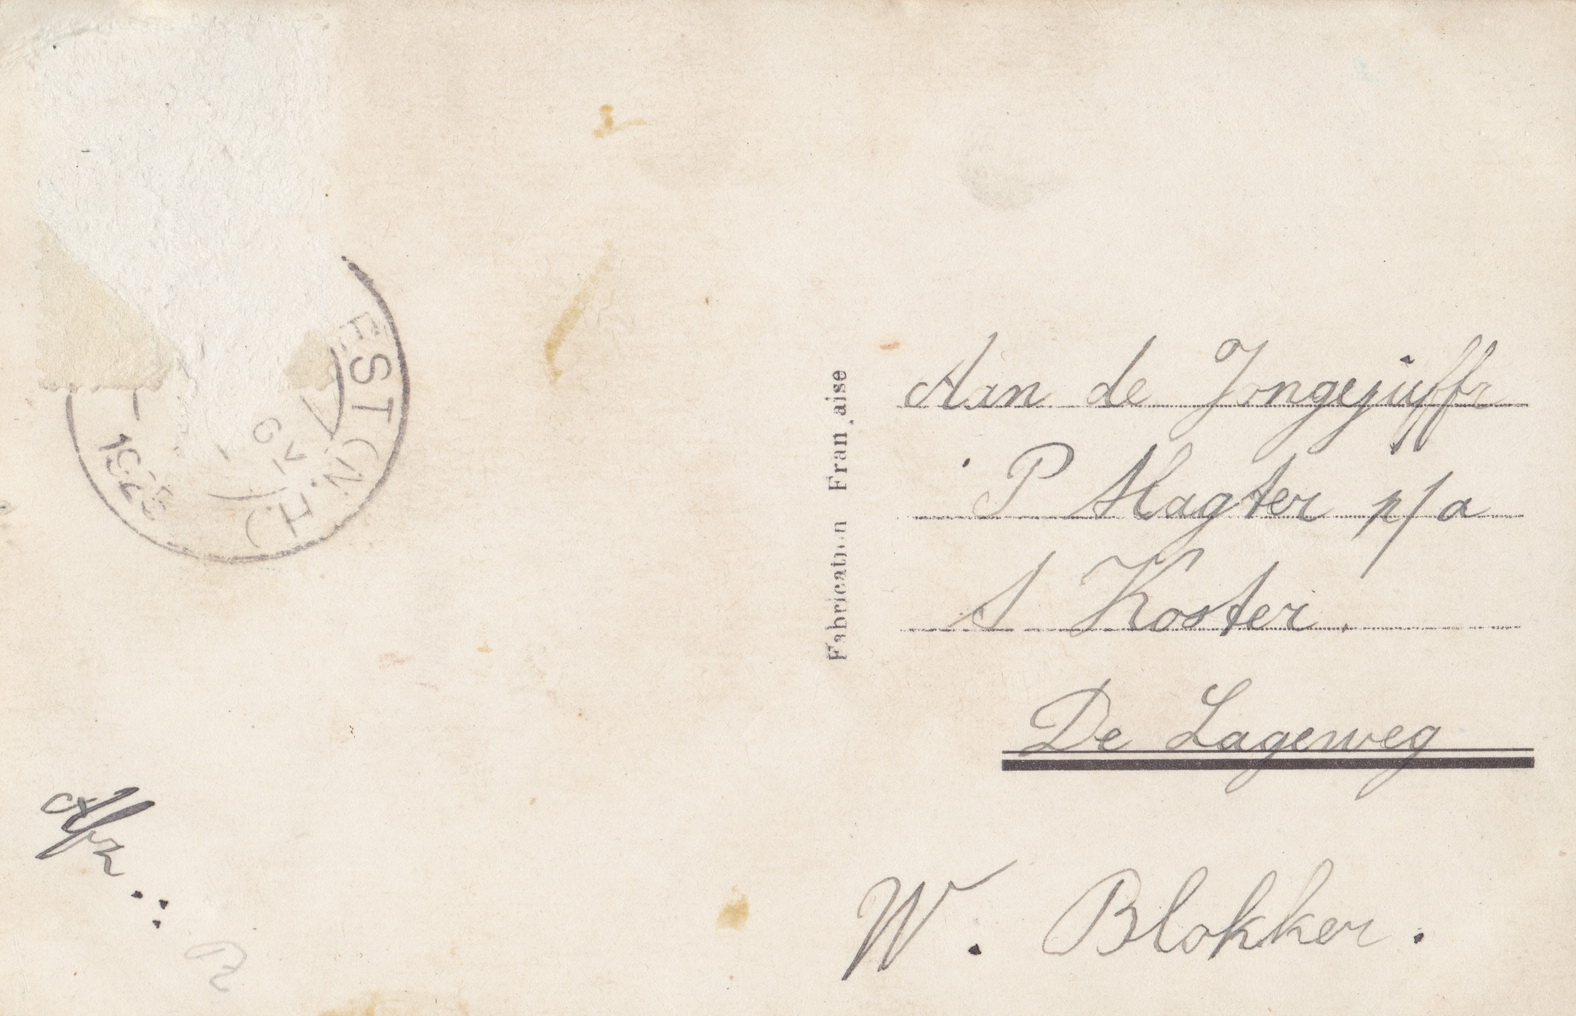 EST (N.H.)
6 V
192
Fabrication Française
Aan de Jongejuffr
P Slagter p/a
S Koster.
De Lageweg
W. Blokker.
Afz.: